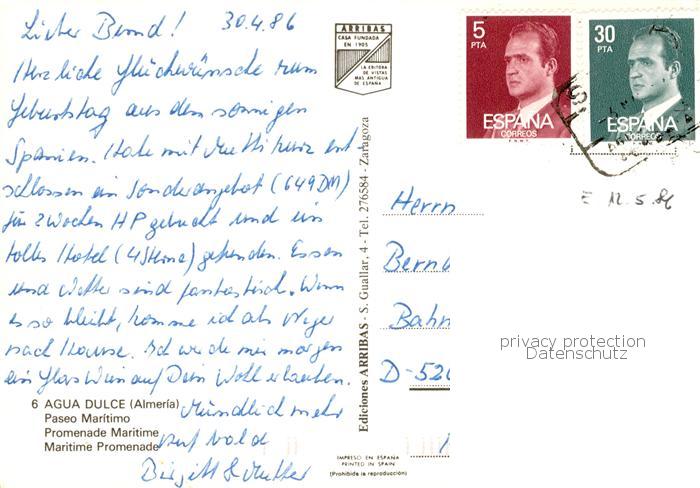 Lieber Bernd! 30.4.86
Herzliche Glückwünsche zum
Geburtstag aus dem sonnigen
Spanien. Habe mit Mutti kurz ent
schlossen ein Sonderangebot (649 DM)
für 2 Wochen HP gebucht und ein
tolles Hotel (4 Sterne) gefunden. Essen
und Wetter sind fantastisch. Wenn
es so bleibt, komme ich als Neger
nach Hause. Ich werde mir morgen
ein Glas Wein auf Dein Wohl erlauben.
Mündlich mehr
auf bald
Birgitt & Mutter
6 AGUA DULCE (Almería)
Paseo Marítimo
Promenade Maritime
Maritime Promenade
ARRIBAS
CASA FUNDADA
EN 1905
LA EDITORA
DE VISTAS
MAS ANTIGUA
DE ESPAÑA
Ediciones ARRIBAS - S. Guallar, 4 - Tel. 276584 - Zaragoza
IMPRESO EN ESPAÑA
PRINTED IN SPAIN
(Prohibida la reproducción)
5
PTA
ESPAÑA
CORREOS
30
PTA
ESPAÑA
CORREOS
E 12.5.86
Herrn
Bern
Bahn
D-520
privacy protection
Datenschutz